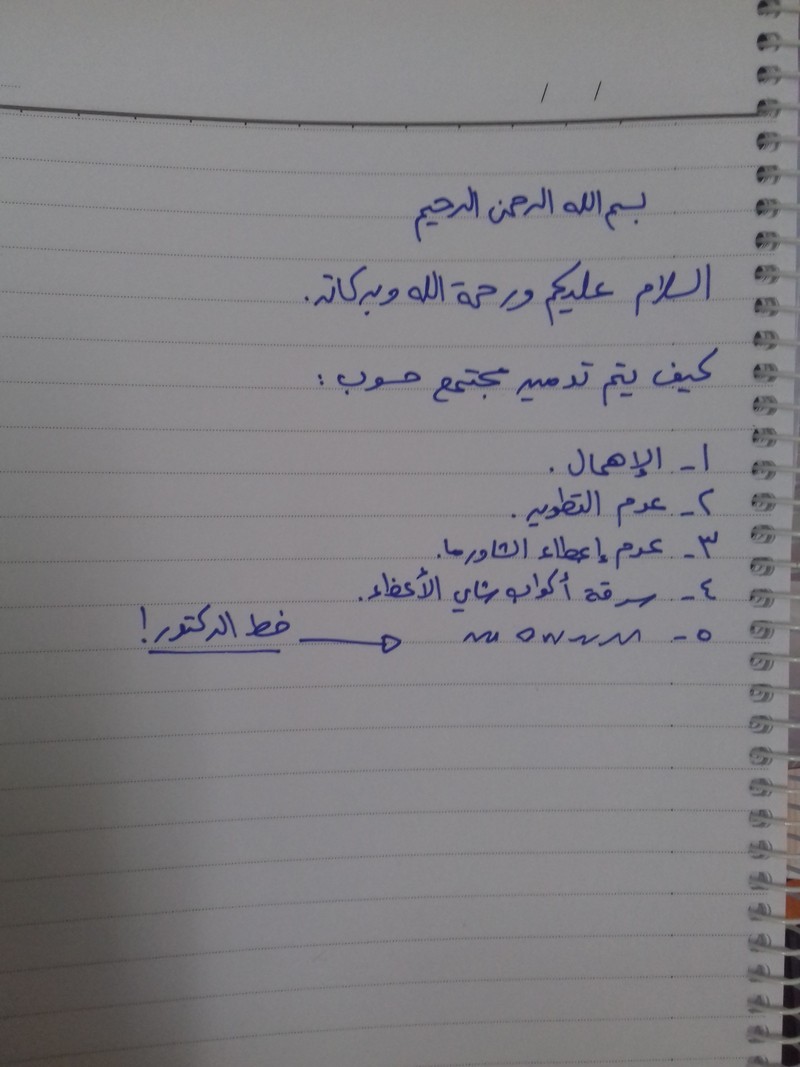 / /
بسم الله الرحمن الرحيم
السلام عليكم ورحمة الله وبركاته.
كيف يتم تدمير مجتمع حسوب :
١- الإهمال .
٢- عدم التطوير .
٣- عدم إعطاء الشاورما.
٤- سرقة أكواب شاي الأعضاء.
٥- خط الدكتور!